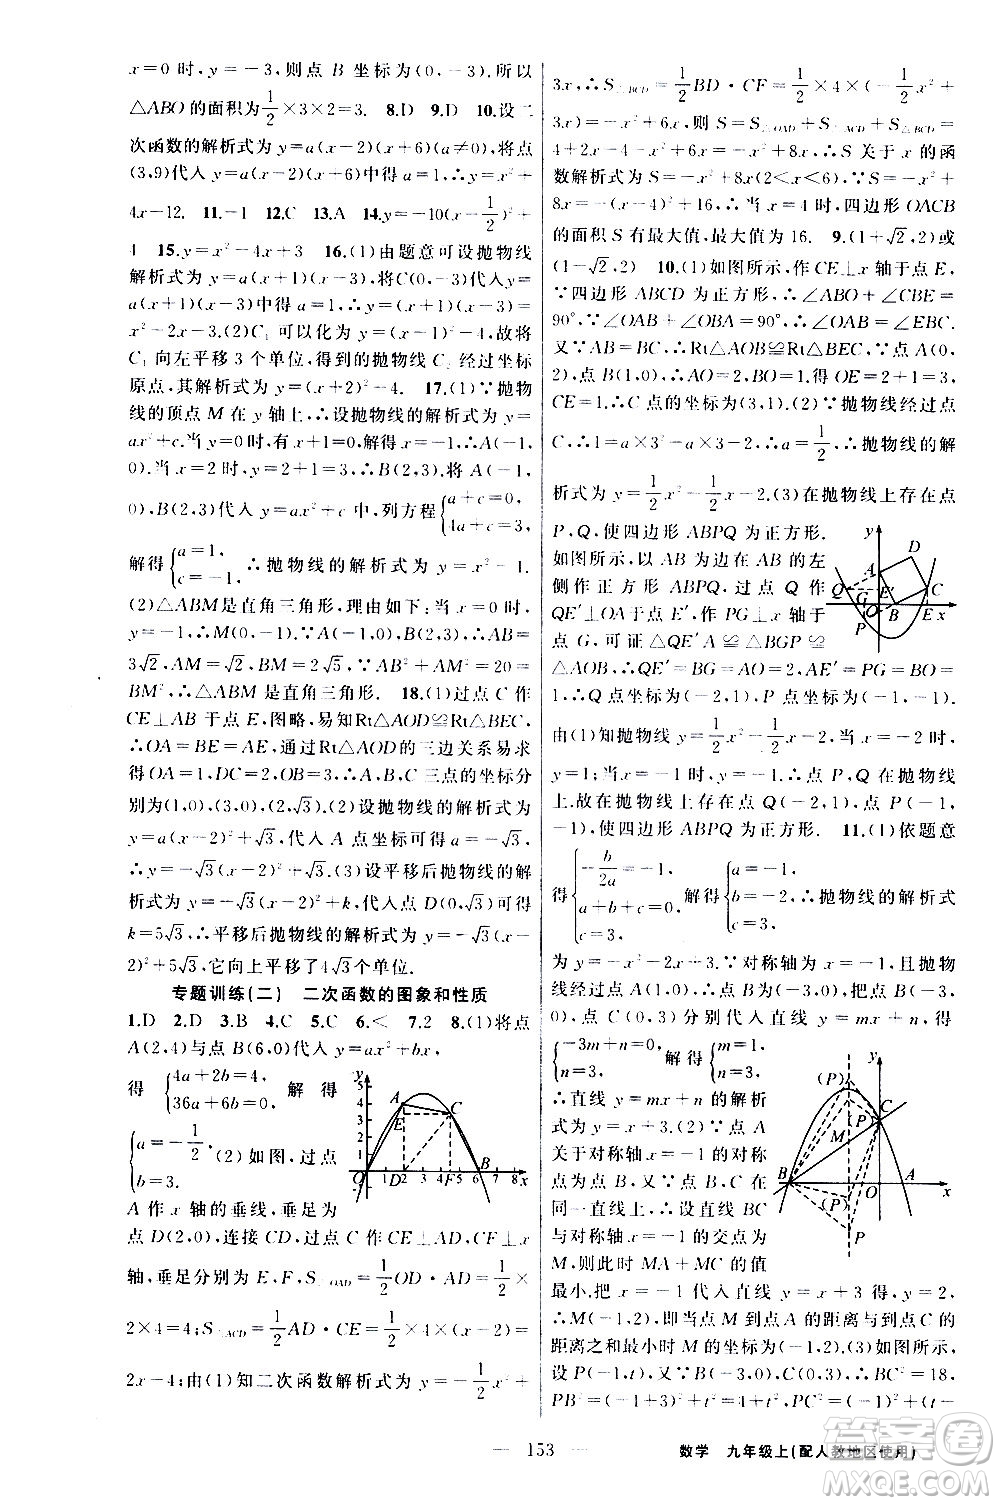 x=0 时,y=-3,则点 B 坐标为(0,-3).所以
△ABO的面积为1/2×3×2=3. 8.D 9.D 10.设二
次函数的解析式为 y=a(x-2)(x+6)(a≠0),将点
(3,9)代入 y=a(x-2)(x+6)中得 a=1,∴y=x²+
4x-12. 11.-1 12.C 13.A 14.y=-10(x-1/2)²+
4 15.y=x²-4x+3 16.(1)由题意可设抛物线
解析式为 y=a(x+1)(x-3),将C(0,-3)代入 y=
a(x+1)(x-3)中得 a=1,∴y=(x+1)(x-3)=
x²-2x-3.(2)C₁ 可以化为 y=(x-1)²-4,故将
C₁ 向左平移 3 个单位,得到的抛物线 C₂ 经过坐标
原点,其解析式为 y=(x+2)²-4. 17.(1)∵抛物
线的顶点 M 在 y 轴上,∴设抛物线的解析式为 y=
ax²+c.当 y=0时,x+1=0,解得 x=-1,∴A(-1,
0).当 x=2 时,y=2+1=3,∴B(2,3).将 A(-1,
0),B(2,3)代入 y=ax²+c 中,列方程{a+c=0, 4a+c=3,
解得{a=1, c=-1. ∴抛物线的解析式为 y=x²-1.
(2)△ABM是直角三角形,理由如下:当 x=0 时,
y=-1,∴M(0,-1).∵A(-1,0),B(2,3),∴AB=
3√2,AM=√2,BM=2√5,∴AB²+AM²=20=
BM²,∴△ABM 是直角三角形. 18.(1)过点 C 作
CE⊥AB 于点 E,图略,易知Rt△AOD≌Rt△BEC,
∴OA=BE=AE,通过Rt△AOD的三边关系易求
OA=1,DC=2,∴A,B,C 三点的坐标分
别为(1,0),(3,0),(2,√3).(2)设抛物线的解析式为
y=a(x-2)²+√3,代入 A 点坐标可得 a=-√3,
∴y=-√3(x-2)²+√3.(3)设平移后抛物线的解
析式为 y=-√3(x-2)²+k,代入点 D(0,√3)得
k=5√3,∴平移后抛物线的解析式为 y=-√3(x-
2)²+5√3,它向上平移了4√3个单位.
专题训练(二) 二次函数的图象和性质
1.D 2.D 3.B 4.C 5.C 6.< 7.2 8.(1)将点
A(2,4)与点 B(6,0)代入 y=ax²+bx,
得 {4a+2b=4, 36a+6b=0. 解 得
{a=-1/2, b=3. (2)如图,过点
A 作 x 轴的垂线,垂足为
点 D(2,0),连接 CD,过点 C 作 CE⊥AD,CF⊥x
轴,垂足分别为 E,F,S△OAD=1/2OD·AD=1/2×
2×4=4;S△ACD=1/2AD·CE=1/2×4×(x-2)=
2x-4;由(1)知二次函数解析式为 y=-1/2x²+
3x,∴S△BCD=1/2BD·CF=1/2×4×(-1/2x²+
3x)=-x²+6x,则 S=S△OAD+S△ACD+S△BCD=
4+2x-4-x²+6x=-x²+8x,∴S 关于 x 的函
数解析式为 S=-x²+8x(2<x<6).∵S=-x²+
8x=-(x-4)²+16,∴当 x=4 时,四边形 OACB
的面积 S 有最大值,最大值为 16. 9.(1+√2,2)或
(1-√2,2) 10.(1)如图所示,作CE⊥x 轴于点 E,
∵四边形 ABCD 为正方形,∴∠ABC=∠AOB=
90°,∴∠OAB+∠OBA=90°,∴∠OAB=∠EBC.
又∵AB=BC,∴Rt△AOB≌Rt△BEC,∵点 A(0,
2),点 B(1,0),∴AO=2,BO=1,得 OE=2+1=3,
CE=1,∴C 点的坐标为(3,1).(2)∵抛物线经过点
C,∴1=a×3²-a×3-2,∴a=1/2,∴抛物线的解
析式为 y=1/2x²-1/2x-2.(3)在抛物线上存在点
P,Q,使四边形 ABPQ 为正方形.
如图所示,以 AB 为边在 AB 的左
侧作正方形 ABPQ,过点 Q 作
QE′⊥OA于点 E′,作 PG⊥x 轴于
点 G,可证 △QE′A≌△BGP≌
△AOB,∴QE′=BG=AO=2,AE′=PG=BO=
1,∴Q 点坐标为(-2,1),P 点坐标为(-1,-1).
由(1)知抛物线 y=1/2x²-1/2x-2,当 x=-2 时,
y=1;当 x=-1 时,y=-1,∴P,Q 在抛物线
上.故在抛物线上存在点 Q(-2,1),P(-1,
-1),使四边形 ABPQ 为正方形. 11.(1)依题意
得{-b/2a=-1, a+b+c=0, c=3, 解得{a=-1, b=-2, c=3, ∴抛物线的解析式
为 y=-x²-2x+3.∵对称轴为 x=-1,且抛物
线经过点 A(1,0),∴点 B(-3,0),∴把点 B(-3,
0),点 C(0,3)分别代入直线 y=mx+n,得
{-3m+n=0, n=3, 解得{m=1, n=3.
∴直线 y=mx+n 的解析
式为 y=x+3.(2)∵点 A
关于对称轴 x=-1 的对称
点为点 B,点 B,C,M 在
同一直线上,∴设直线 BC
与对称轴 x=-1 的交点为
M,则此时 MA+MC 的值
最小.把 x=-1 代入直线 y=x+3,得 y=2,
∴M(-1,2),即当点 M 到点 A 的距离与到点 C 的
距离之和最小时 M 的坐标为(-1,2).(3)如图所示,
设 P(-1,t),又∵B(-3,0),C(0,3),∴BC²=18,
PB²=(-1+3)²+t²=4+t²,PC²=(-1)²+(t-
— 153 — 数学 九年级上(配人教地区使用)
答案圈